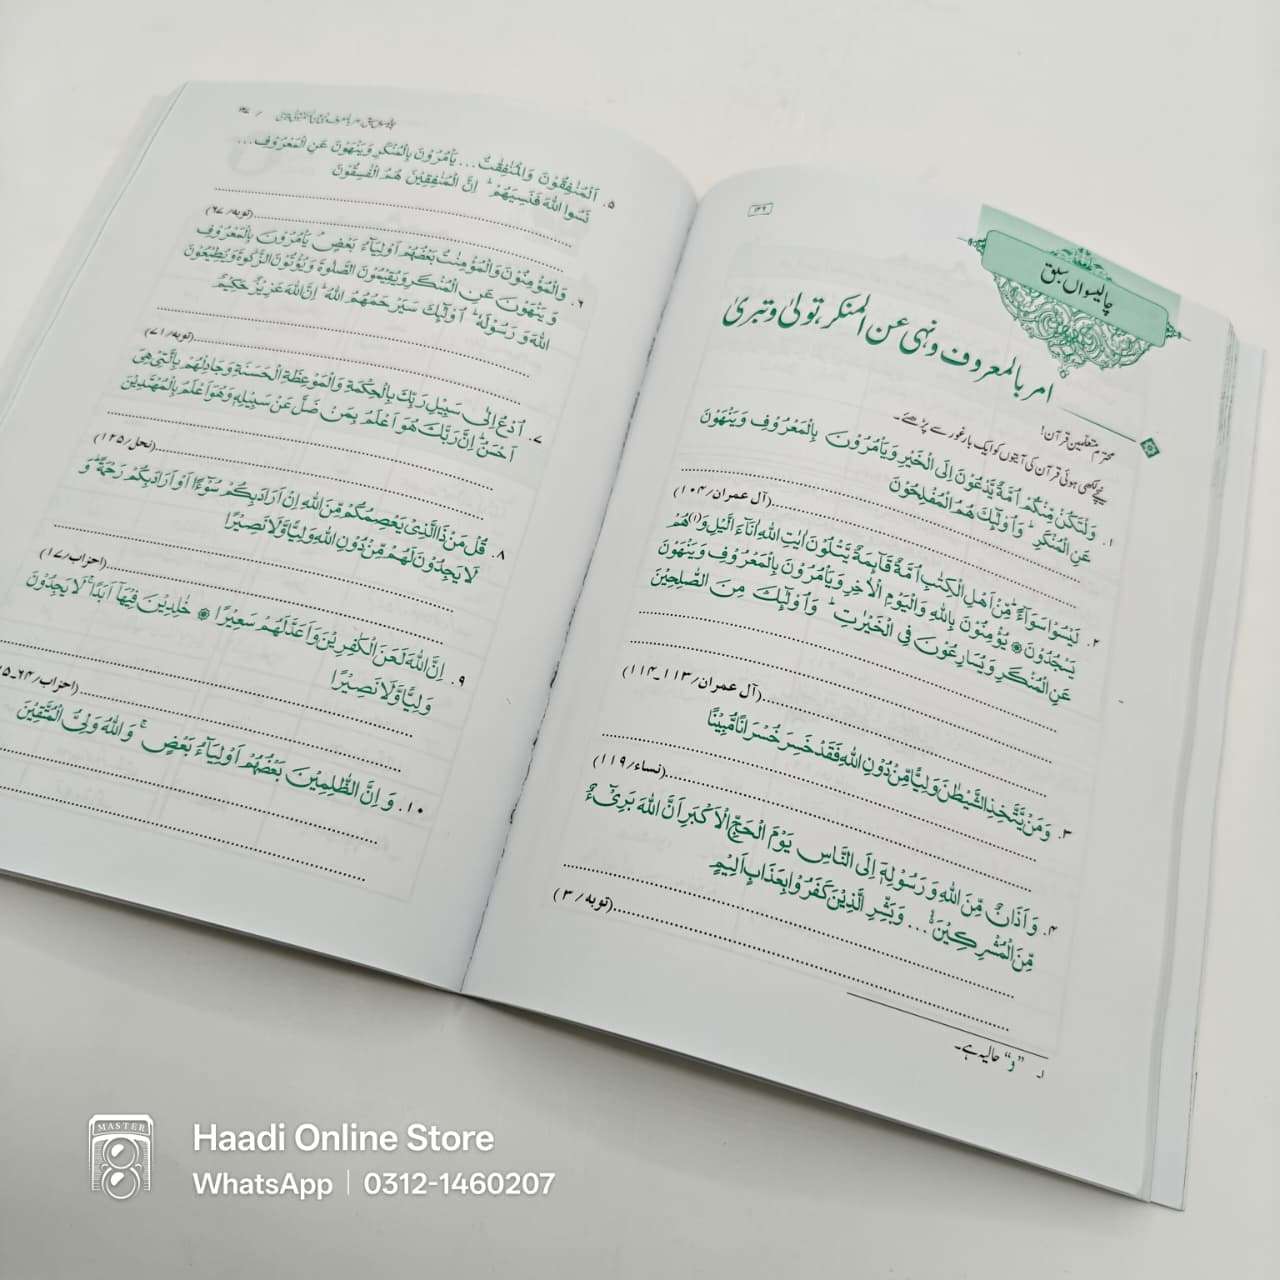 ۱۴۶
چالیسواں سبق
امر بالمعروف و نہی عن المنکر، تولیٰ و تبریٰ
محترم متعلمین قرآن!
نیچے لکھی ہوئی قرآن کی آیتوں کو ایک بار غور سے پڑھئے۔
۱. وَلْتَكُنْ مِّنْكُمْ اُمَّةٌ يَّدْعُوْنَ اِلَى الْخَيْرِ وَيَاْمُرُوْنَ بِالْمَعْرُوْفِ وَيَنْهَوْنَ
عَنِ الْمُنْكَرِ ۭ وَاُولٰۗىِٕكَ ھُمُ الْمُفْلِحُوْنَ
(آل عمران/۱۰۴)
۲. لَيْسُوْا سَوَاۗءً ۭ مِّنْ اَھْلِ الْكِتٰبِ اُمَّةٌ قَاۗىِٕمَةٌ يَّتْلُوْنَ اٰيٰتِ اللّٰهِ اٰنَاۗءَ الَّيْلِ وَ(۱)ھُمْ
يَسْجُدُوْنَ ۞ يُؤْمِنُوْنَ بِاللّٰهِ وَالْيَوْمِ الْاٰخِرِ وَيَاْمُرُوْنَ بِالْمَعْرُوْفِ وَيَنْهَوْنَ
عَنِ الْمُنْكَرِ وَيُسَارِعُوْنَ فِي الْخَيْرٰتِ ۭ وَاُولٰۗىِٕكَ مِنَ الصّٰلِحِيْنَ
(آل عمران/۱۱۳_۱۱۴)
۳. وَمَنْ يَّتَّخِذِ الشَّيْطٰنَ وَلِيًّا مِّنْ دُوْنِ اللّٰهِ فَقَدْ خَسِرَ خُسْرَانًا مُّبِيْنًا
(نساء/۱۱۹)
۴. وَاَذَانٌ مِّنَ اللّٰهِ وَرَسُوْلِهٖٓ اِلَى النَّاسِ يَوْمَ الْحَجِّ الْاَكْبَرِ اَنَّ اللّٰهَ بَرِيْۗءٌ
مِّنَ الْمُشْرِكِيْنَ ... وَبَشِّرِ الَّذِيْنَ كَفَرُوْا بِعَذَابٍ اَلِيْمٍ
(توبہ/۳)
۱۔ ”و“ حالیہ ہے۔
۵. اَلْمُنٰفِقُوْنَ وَالْمُنٰفِقٰتُ ... يَاْمُرُوْنَ بِالْمُنْكَرِ وَيَنْهَوْنَ عَنِ الْمَعْرُوْفِ ...
نَسُوا اللّٰهَ فَنَسِيَهُمْ ۭ اِنَّ الْمُنٰفِقِيْنَ هُمُ الْفٰسِقُوْنَ
(توبہ/۶۷)
۶. وَالْمُؤْمِنُوْنَ وَالْمُؤْمِنٰتُ بَعْضُهُمْ اَوْلِيَاۗءُ بَعْضٍ ۘ يَاْمُرُوْنَ بِالْمَعْرُوْفِ
وَيَنْهَوْنَ عَنِ الْمُنْكَرِ وَيُقِيْمُوْنَ الصَّلٰوةَ وَيُؤْتُوْنَ الزَّكٰوةَ وَيُطِيْعُوْنَ
اللّٰهَ وَرَسُوْلَهٗ ۭ اُولٰۗىِٕكَ سَيَرْحَمُهُمُ اللّٰهُ ۭ اِنَّ اللّٰهَ عَزِيْزٌ حَكِيْمٌ
(توبہ/۷۱)
۷. اُدْعُ اِلٰى سَبِيْلِ رَبِّكَ بِالْحِكْمَةِ وَالْمَوْعِظَةِ الْحَسَنَةِ وَجَادِلْهُمْ بِالَّتِيْ هِيَ
اَحْسَنُ ۭ اِنَّ رَبَّكَ هُوَ اَعْلَمُ بِمَنْ ضَلَّ عَنْ سَبِيْلِهٖ وَهُوَ اَعْلَمُ بِالْمُهْتَدِيْنَ
(نحل/۱۲۵)
۸. قُلْ مَنْ ذَا الَّذِيْ يَعْصِمُكُمْ مِّنَ اللّٰهِ اِنْ اَرَادَ بِكُمْ سُوْۗءًا اَوْ اَرَادَ بِكُمْ رَحْمَةً ۭ وَ
لَا يَجِدُوْنَ لَهُمْ مِّنْ دُوْنِ اللّٰهِ وَلِيًّا وَّلَا نَصِيْرًا
(احزاب/۱۷)
۹. اِنَّ اللّٰهَ لَعَنَ الْكٰفِرِيْنَ وَاَعَدَّ لَهُمْ سَعِيْرًا ۞ خٰلِدِيْنَ فِيْهَآ اَبَدًا ۚ لَا يَجِدُوْنَ
وَلِيًّا وَّلَا نَصِيْرًا
(احزاب/۶۴_۶۵
۱۰. وَاِنَّ الظّٰلِمِيْنَ بَعْضُهُمْ اَوْلِيَاۗءُ بَعْضٍ ۚ وَاللّٰهُ وَلِيُّ الْمُتَّقِيْنَ
MASTER
Haadi Online Store
WhatsApp | 0312-1460207